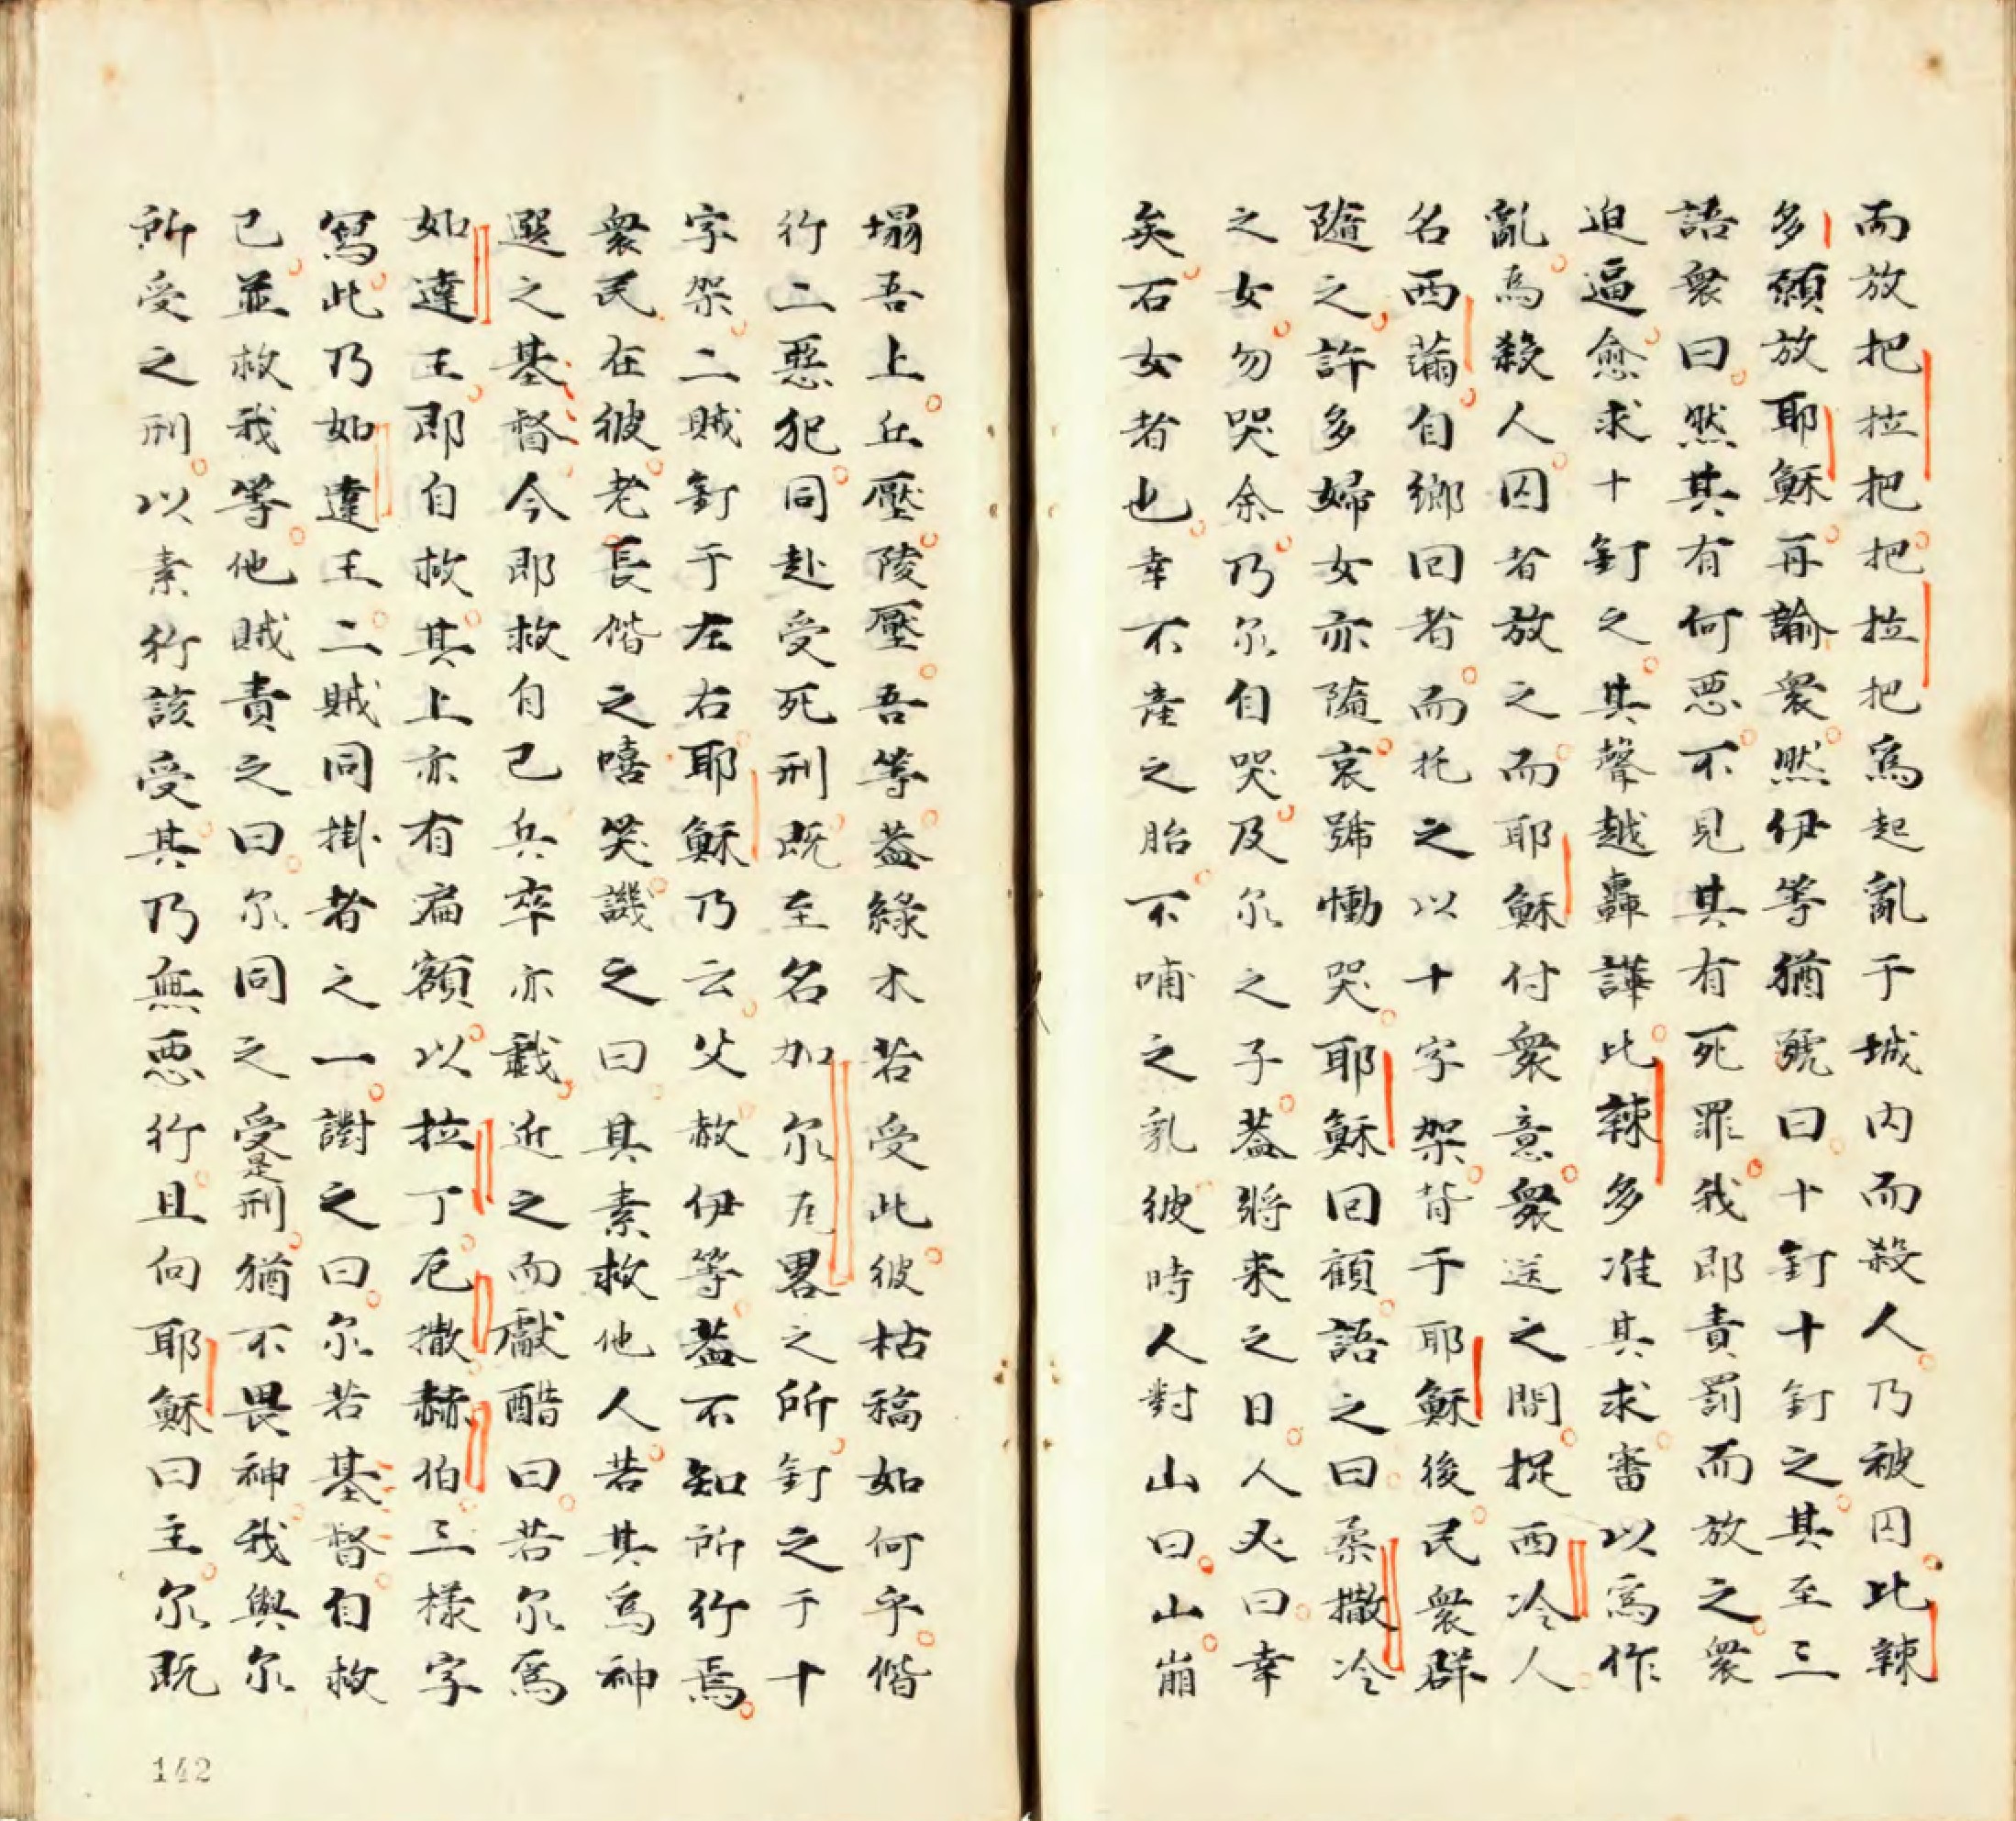 而放把拉把把拉把為起亂于城内而殺人乃被囚比辣
多願放耶穌再諭衆然伊等猶號曰十釘十釘之其至三
語衆曰然其有何惡不見其有死罪我即責罰而放之衆
迫逼愈求十釘之其聲越轟譁比辣多准其求審以為作
亂為殺人囚者放之而耶穌付衆意衆送之間捉西冷人
名西滿自鄉回者而托之以十字架背于耶穌後民衆群
隨之許多婦女亦隨哀號慟哭耶穌回顧語之曰柔撒冷
之女勿哭余乃尔自哭及尔之子蓋將來之日人又曰幸
矣石女者也幸不産之胎不哺之乳彼時人對山曰山崩
塌吾上丘壓陵壓吾等蓋綠木若受此彼枯稿如何乎偕
行二惡犯同赴受死刑既至名加尔瓦畧之所釘之于十
字架二賊釘于左右耶穌乃云父赦伊等蓋不知所行焉
衆民在彼老長偕之嘻笑譏之曰其素救他人若其為神
選之基督今即救自己兵卒亦戲近之而獻醋曰若尔為
如達王即自救其上亦有扁額以拉丁厄撒赫伯三樣字
寫此乃如達王二賊同掛者之一謝之曰尔若基督自救
己並救我等他賊責之曰尔同之受是刑猶不畏神我與尔
所受之刑以素行該受其乃無惡行且向耶穌曰主尔既
142